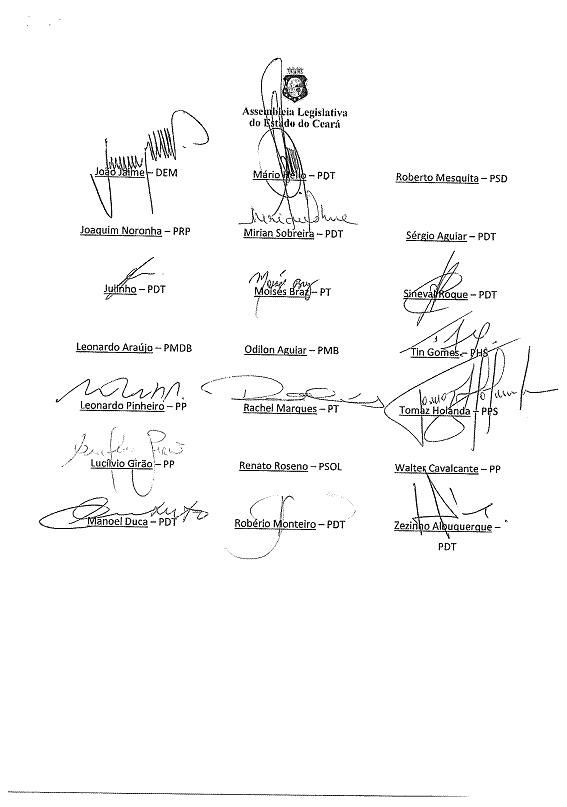 Assembleia Legislativa
do Estado do Ceará
João Jaime – DEM
Mário Hélio – PDT
Roberto Mesquita – PSD
Joaquim Noronha – PRP
Mirian Sobreira – PDT
Sérgio Aguiar – PDT
Julinho – PDT
Moisés Braz
Moisés Braz – PT
Sineval Roque – PDT
Leonardo Araújo – PMDB
Odilon Aguiar – PMB
Tin Gomes – PHS
Leonardo Pinheiro – PP
Rachel Marques – PT
Tomaz Holanda – PPS
Lucílvio Girão – PP
Renato Roseno – PSOL
Walter Cavalcante – PP
Manoel Duca – PDT
Robério Monteiro – PDT
Zezinho Albuquerque –
PDT